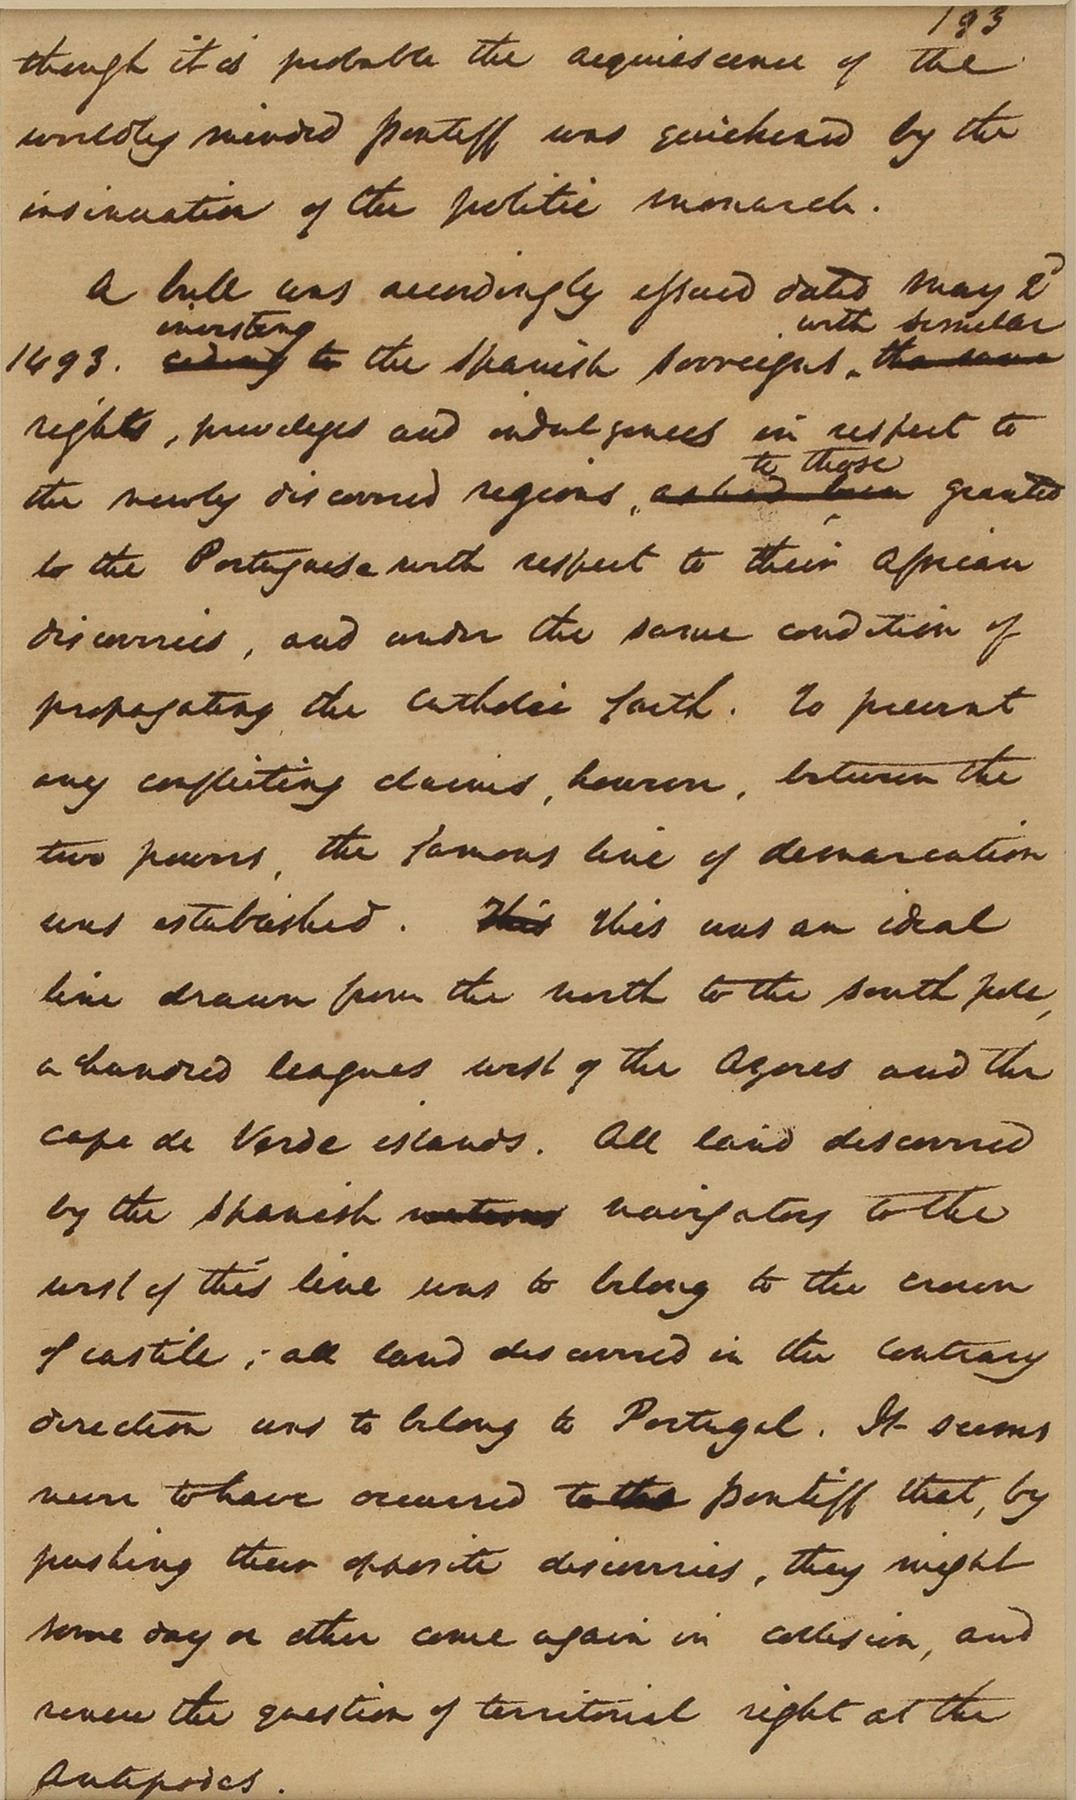 193
though it is probable the acquiescence of the
worldly minded pontiff was quickened by the
insinuation of the politic monarch.
A bull was accordingly issued dated May 2d
investing with similar
1493. ceding to the Spanish sovreigns, the same
rights, priviliges and indulgences in respect to
to those
the newly discovered regions, as had been granted
to the Portuguese with respect to their African
discoveries, and under the same condition of
propagating the Catholic faith. To prevent
any conflicting claims, however, between the
two powers, the famous line of demarcation
was established. This This was an ideal
line drawn from the north to the south pole,
a hundred leagues west of the Azores and the
Cape de Verde islands. All land discovered
by the Spanish nations navigators to the
west of this line was to belong to the crown
of Castile; all land discovered in the contrary
direction was to belong to Portugal. It seems
never to have occurred to the pontiff that, by
pushing their opposite discoveries, they might
some day or other come again in collision, and
renew the question of territorial right at the
Antipodes.